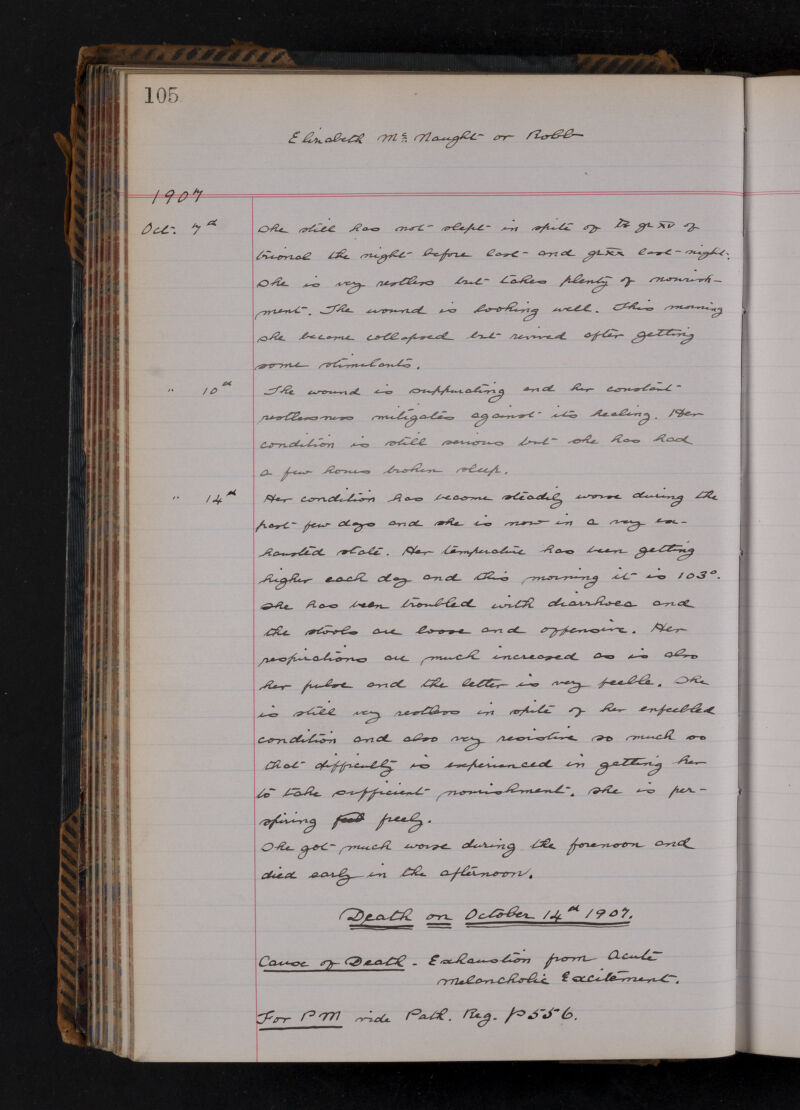 105
Elizabeth McNaught or Robb
1907
Oct. 7th She still has not slept in spite of gr XV of
trional the night before last and gr XX last night.
She is very restless but takes plenty of nourish-
ment. The wound is looking well. This morning
she became collapsed but revived after getting
some stimulants.
" 10th The wound is suppurating and her constant
restlessness mitigates against its healing. Her
condition is still serious but she has had
a few hours broken sleep.
" 14th Her condition has become steadily worse during the
past few days and she is now in a very ex-
hausted state. Her temperature has been getting
higher each day and this morning it is 103°.
She has been troubled with diarrhoea and
the stools are loose and offensive. Her
respirations are much increased as is also
her pulse and the latter is very feeble. She
is still very restless in spite of her enfeebled
condition and also very resistive so much so
that difficulty is experienced in getting her
to take sufficient nourishment. She is per-
spiring freely.
She got much worse during the forenoon and
died early in the afternoon.
Death on October 14th 1907.
Cause of Death - Exhaustion from Acute
Melancholic Excitement.
For PM vide Path. Reg. p 556.